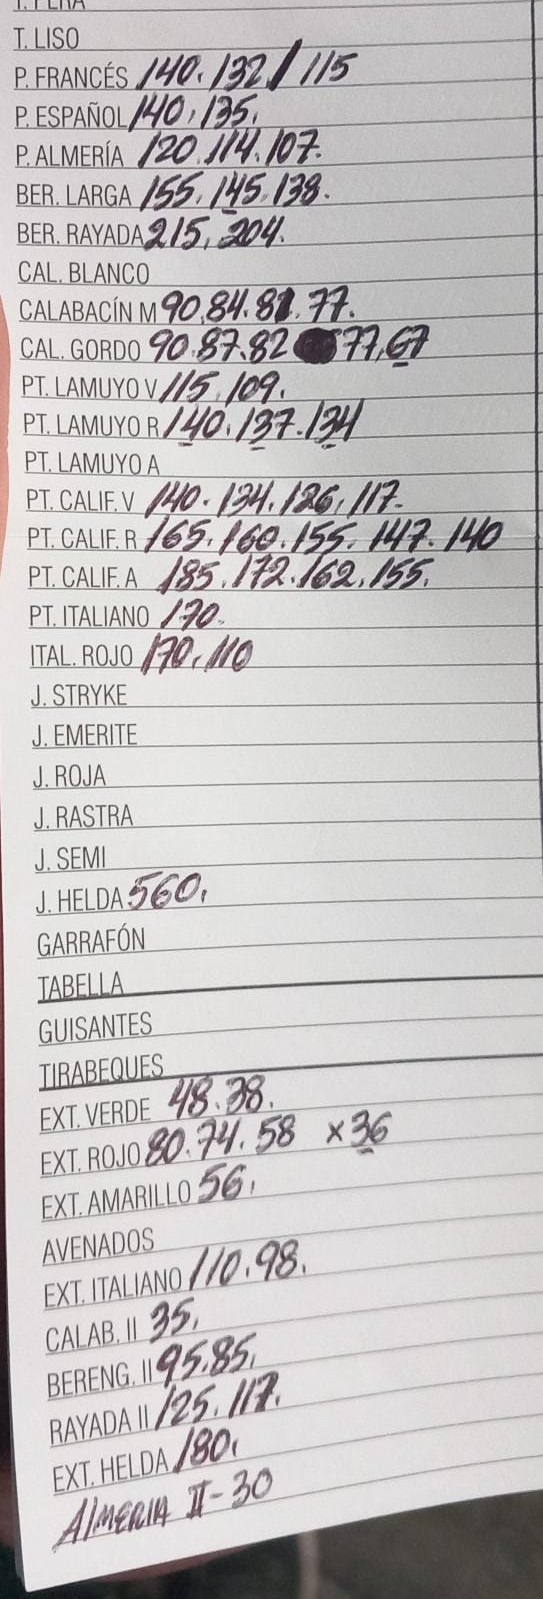 T. PERA
T. LISO
P. FRANCÉS 140. 132 / 115
P. ESPAÑOL 140, 135,
P. ALMERÍA 120. 114. 107.
BER. LARGA 155, 145, 138.
BER. RAYADA 215, 204.
CAL. BLANCO
CALABACÍN M 90, 84. 81. 77.
CAL. GORDO 90. 87. 82 77, 67
PT. LAMUYO V 115, 109.
PT. LAMUYO R 140. 137. 134
PT. LAMUYO A
PT. CALIF. V 140. 134. 126, 117.
PT. CALIF. R 165. 160. 155. 147. 140
PT. CALIF. A 185. 172. 162. 155.
PT. ITALIANO 170.
ITAL. ROJO 170, 110
J. STRYKE
J. EMERITE
J. ROJA
J. RASTRA
J. SEMI
J. HELDA 560,
GARRAFÓN
TABELLA
GUISANTES
TIRABEQUES
EXT. VERDE 48. 38.
EXT. ROJO 80. 74. 58 x 36
EXT. AMARILLO 56,
AVENADOS
EXT. ITALIANO 110. 98.
CALAB. II 35,
BERENG. II 95. 85,
RAYADA II 125. 117.
EXT. HELDA 180,
AlMERIA II-30